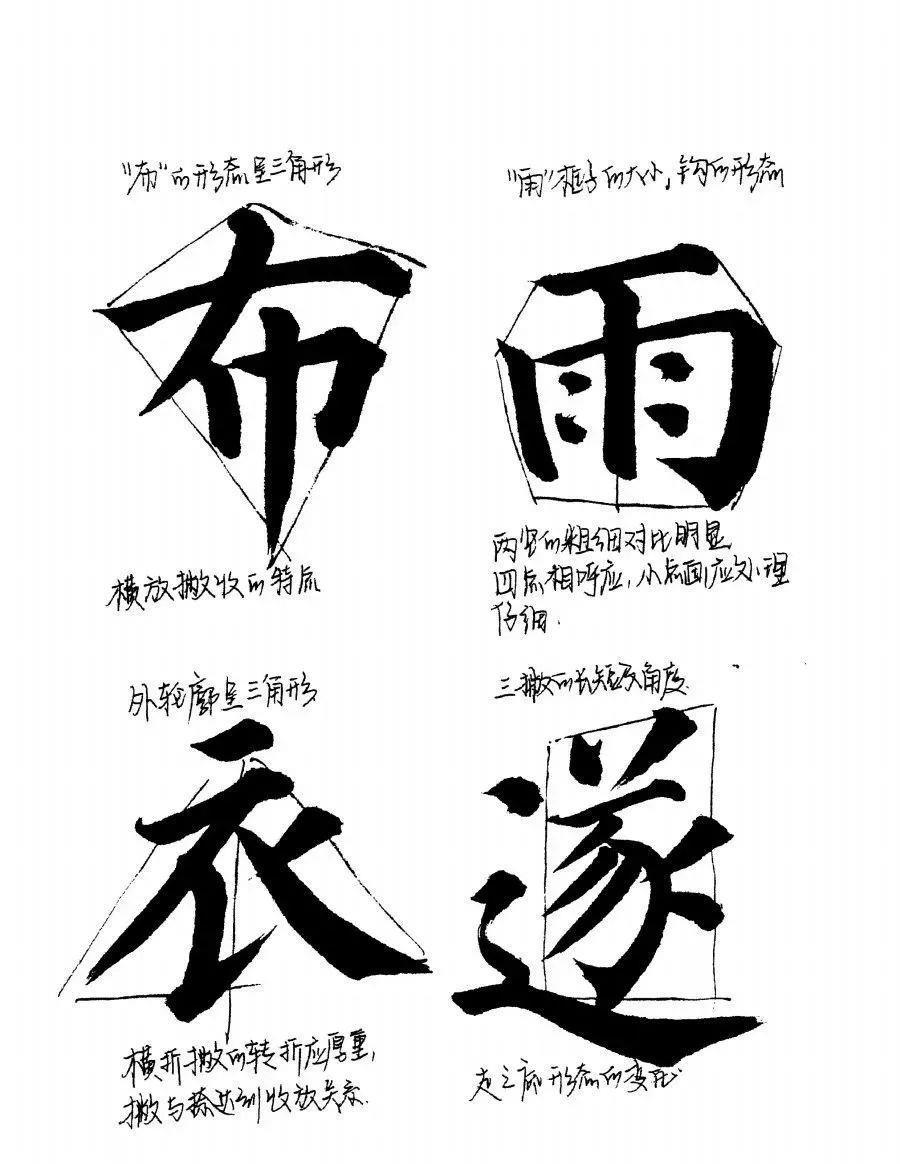 "布"的形态呈三角形
布
横放撇收的特点
"雨"框子的大小，钩的形态
雨
两竖的粗细对比明显
四点相呼应，小点画应处理
仔细.
外轮廓呈三角形
衣
横折撇的转折应厚重，
撇与捺达到收放关系.
三撇的长短及角度.
遂
走之底形态的变化